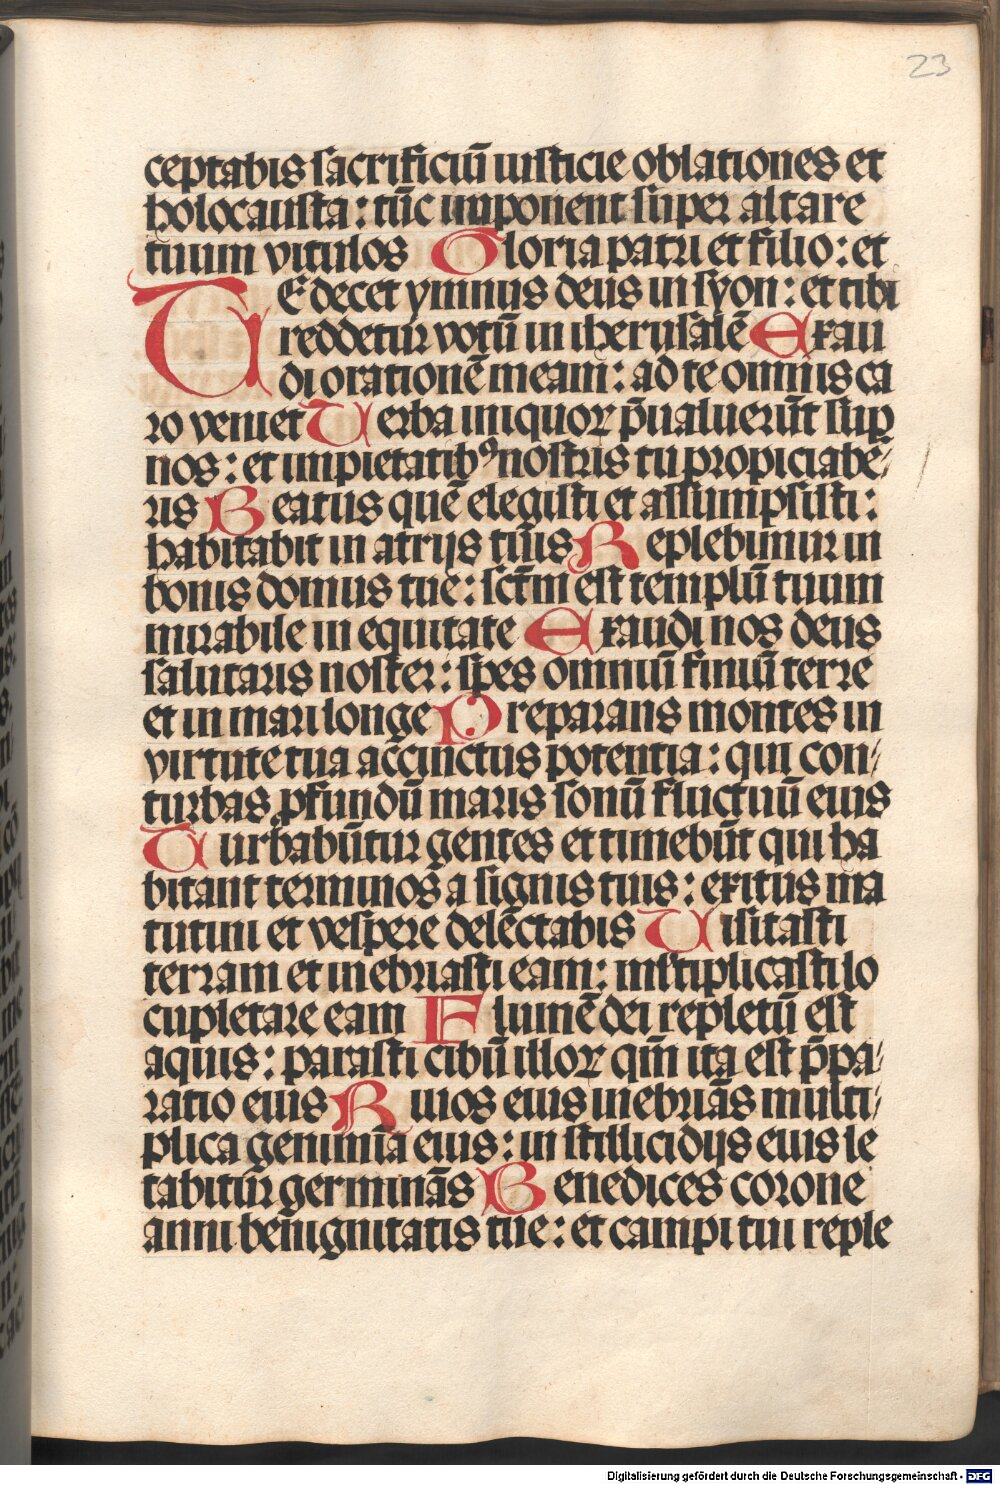 23
ceptabis sacrificiū iusticie oblationes et
holocausta : tūc imponent super altare
tuum vitulos Gloria patri et filio : et
TE decet ymnus deus in syon : et tibi
reddetur votū in iherusalē Exau
di orationē meam : ad te omnis ca
ro veniet Verba iniquoꝝ p̄ualuerūt sup
nos : et impietatibꝰ nostris tu propiciabe⸗
ris Beatus quē elegisti et assumpsisti :
habitabit in atrijs tuis Replebimur in
bonis domus tue : sctm̄ est templū tuum
mirabile in equitate Exaudi nos deus
salutaris noster : spes omniū finiū terre
et in mari longe Preparans montes in
virtute tua accinctus potentia : qui con⸗
turbas ꝓfundū maris sonū fluctuū eius
Turbabūtur gentes et timebūt qui ha
bitant terminos a signis tuis : exitus ma
tutini et vespere delectabis Visitasti
terram et inebriasti eam : mltiplicasti lo
cupletare eam Flumē dei repletū est
aquis : parasti cibū illoꝝ qm̄ ita est p̄pa⸗
ratio eius Riuos eius inebriās multi⸗
plica genimīa eius : in stillicidijs eius le
tabitur germinās Benedices corone
anni benignitatis tue : et campi tui reple
Digitalisierung gefördert durch die Deutsche Forschungsgemeinschaft - DFG